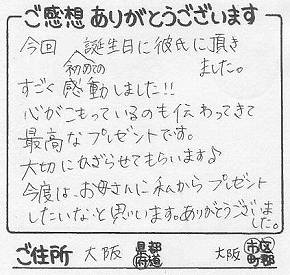 ご感想ありがとうございます
今回 初めての 誕生日に彼氏に頂き
ました。
すごく感動しました!!
心がこもっているのも伝わってきて
最高なプレゼントです。
大切にかざらせてもらいます♪
今度は、お母さんに私からプレゼント
したいなと思います。ありがとうございました。
ご住所 大阪 県都府道 大阪 市区町郡